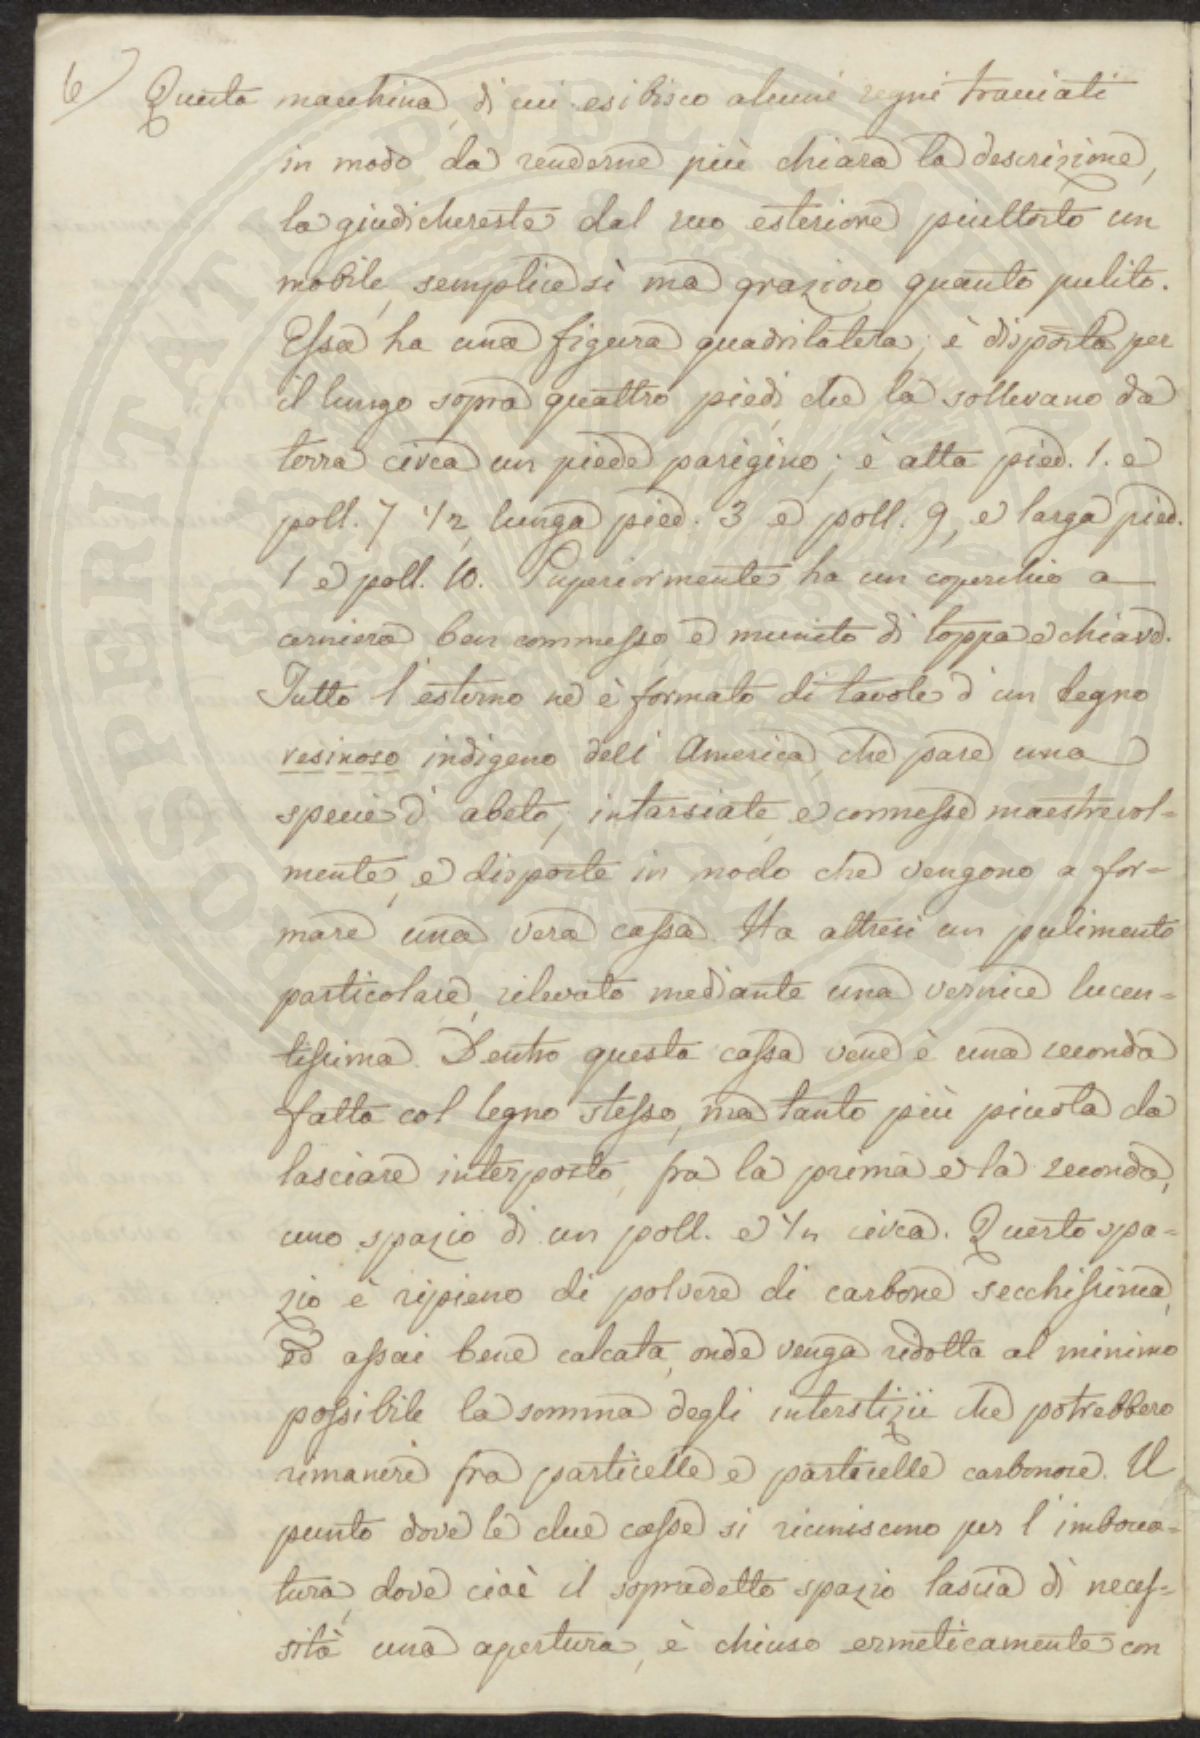 6/ Questa macchina, di cui esibisco alcuni segni tracciati
in modo da renderne più chiara la descrizione,
la giudichereste dal suo esteriore piuttosto un
mobile, semplice sì ma grazioso quanto pulito.
Essa ha una figura quadrilatera; è disposta per
il lungo sopra quattro piedi, che la sollevano da
terra circa un piede parigino; è alta pied. 1. e
poll. 7 1/2, lunga pied. 3 e poll. 9, e larga pied.
1 e poll. 10. Superiormente ha un coperchio a
cerniera ben commesso e munito di toppa e chiave.
Tutto l'esterno ne è formato di tavole d'un legno
resinoso indigeno dell'America, che pare una
specie d'abeto, intarsiate, e connesse maestrevol=
mente, e disposte in modo che vengono a for=
mare una vera cassa. Ha altresì un pulimento
particolare, rilevato mediante una vernice lucen=
tissima. Dentro questa cassa vene è una seconda
fatta col legno stesso, ma tanto più piccola da
lasciare interposto, fra la prima e la seconda,
uno spazio di un poll. e circa. Questo spa=
zio è ripieno di polvere di carbone secchissima,
ed assai bene calcata, onde venga ridotta al minimo
possibile la somma degli interstizii che potrebbero
rimanere fra particelle e particelle carbonose. Il
punto dove le due casse si riuniscono per l'imbocca=
tura, dove cioè il sopradetto spazio lascia di neces=
sità una apertura, è chiuso ermeticamente con
PROSPERITATI PVBLICAE AVGENDAE